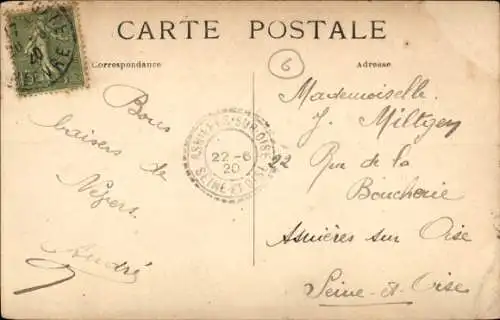 CARTE POSTALE
Correspondance
Adresse
6
Bons
baisers de
Nyers
André
ASNIÈRES-SUR-OISE
22-6
20
SEINE-ET-OISE
Mademoiselle
J. Miltgen
22 Rue de la
Boucherie
Asnières sur Oise
Seine-et-Oise